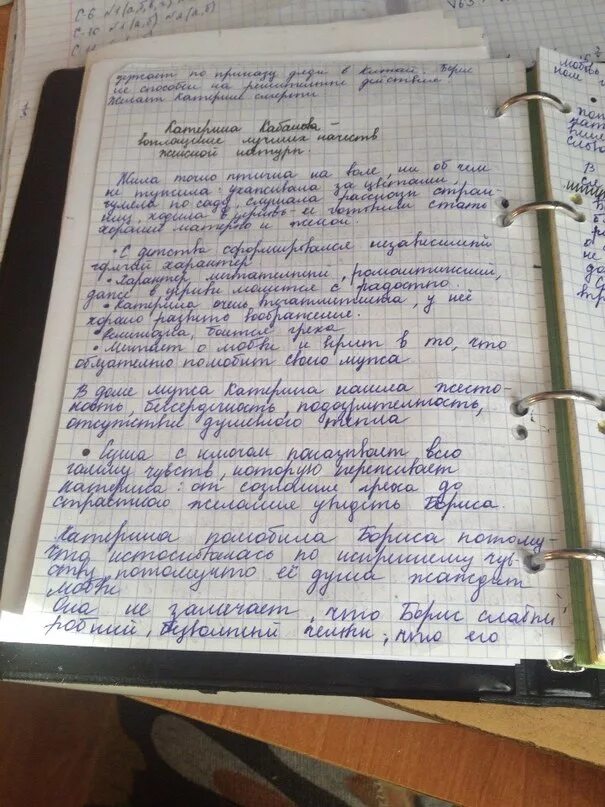 С-6 №1(а,б,в,
С-10 №1(а,б) №2(а,б)
по приказу дяди в Китай. Борис
не способен на решительные действия
желает Катерине смерти
Катерина Кабанова –
воплощение лучших качеств
женской натуры.
Жила точно птичка на воле, ни об чем
не тужила: ухаживала за цветами,
гуляла по саду, слушала рассказы стран-
ниц, ходила в церковь – её готовили стать
хорошей матерью и женой.
• С детства сформировался независимый
горячий характер
• Характер мечтательный, романтический,
даже в церкви молится с радостно.
• Катерина очень впечатлительна, у неё
хорошо развито воображение.
• боится греха
• Мечтает о любви и верит в то, что
обязательно полюбит своего мужа
В доме мужа Катерина нашла жесто-
кость, бессердечность, подозрительность,
отсутствие душевного тепла
• Сцена с ключом показывает всю
гамму чувств, которую переживает
Катерина: от сознание греха до
страстного желание увидеть Бориса.
Катерина полюбила Бориса потому-
что истосковалась по искреннему чув-
ству, потомучто её душа жаждет
любви
Она не замечает, что Борис слабый
робкий, безвольный человек, что его